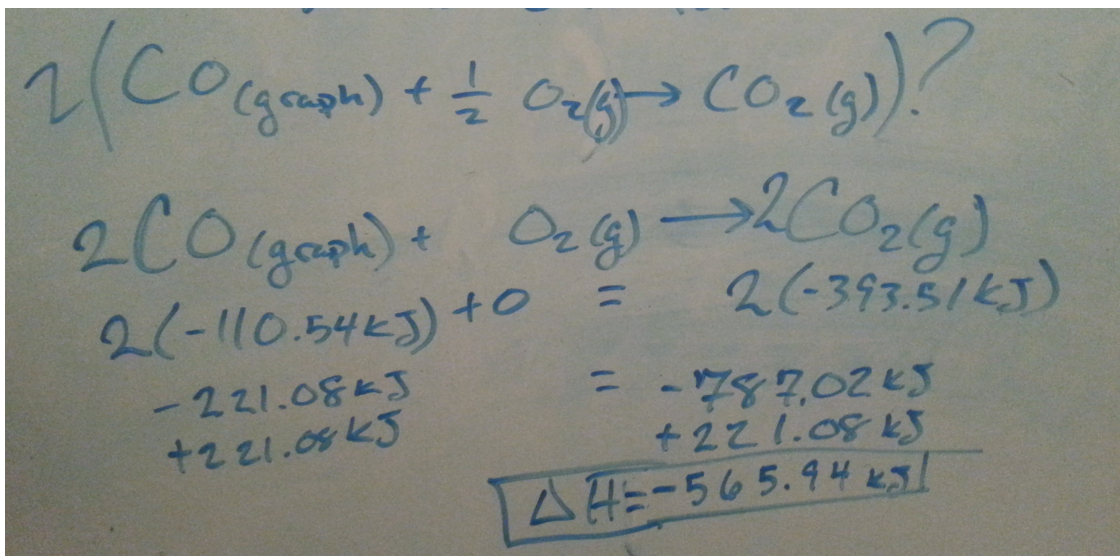 2(CO(graph) + 1/2 O₂(g) → CO₂(g))?
2CO(graph) + O₂(g) → 2CO₂(g)
2(-110.54kJ) + 0 = 2(-393.51kJ)
-221.08kJ = -787.02kJ
+221.08kJ +221.08kJ
ΔH=-565.94kJ